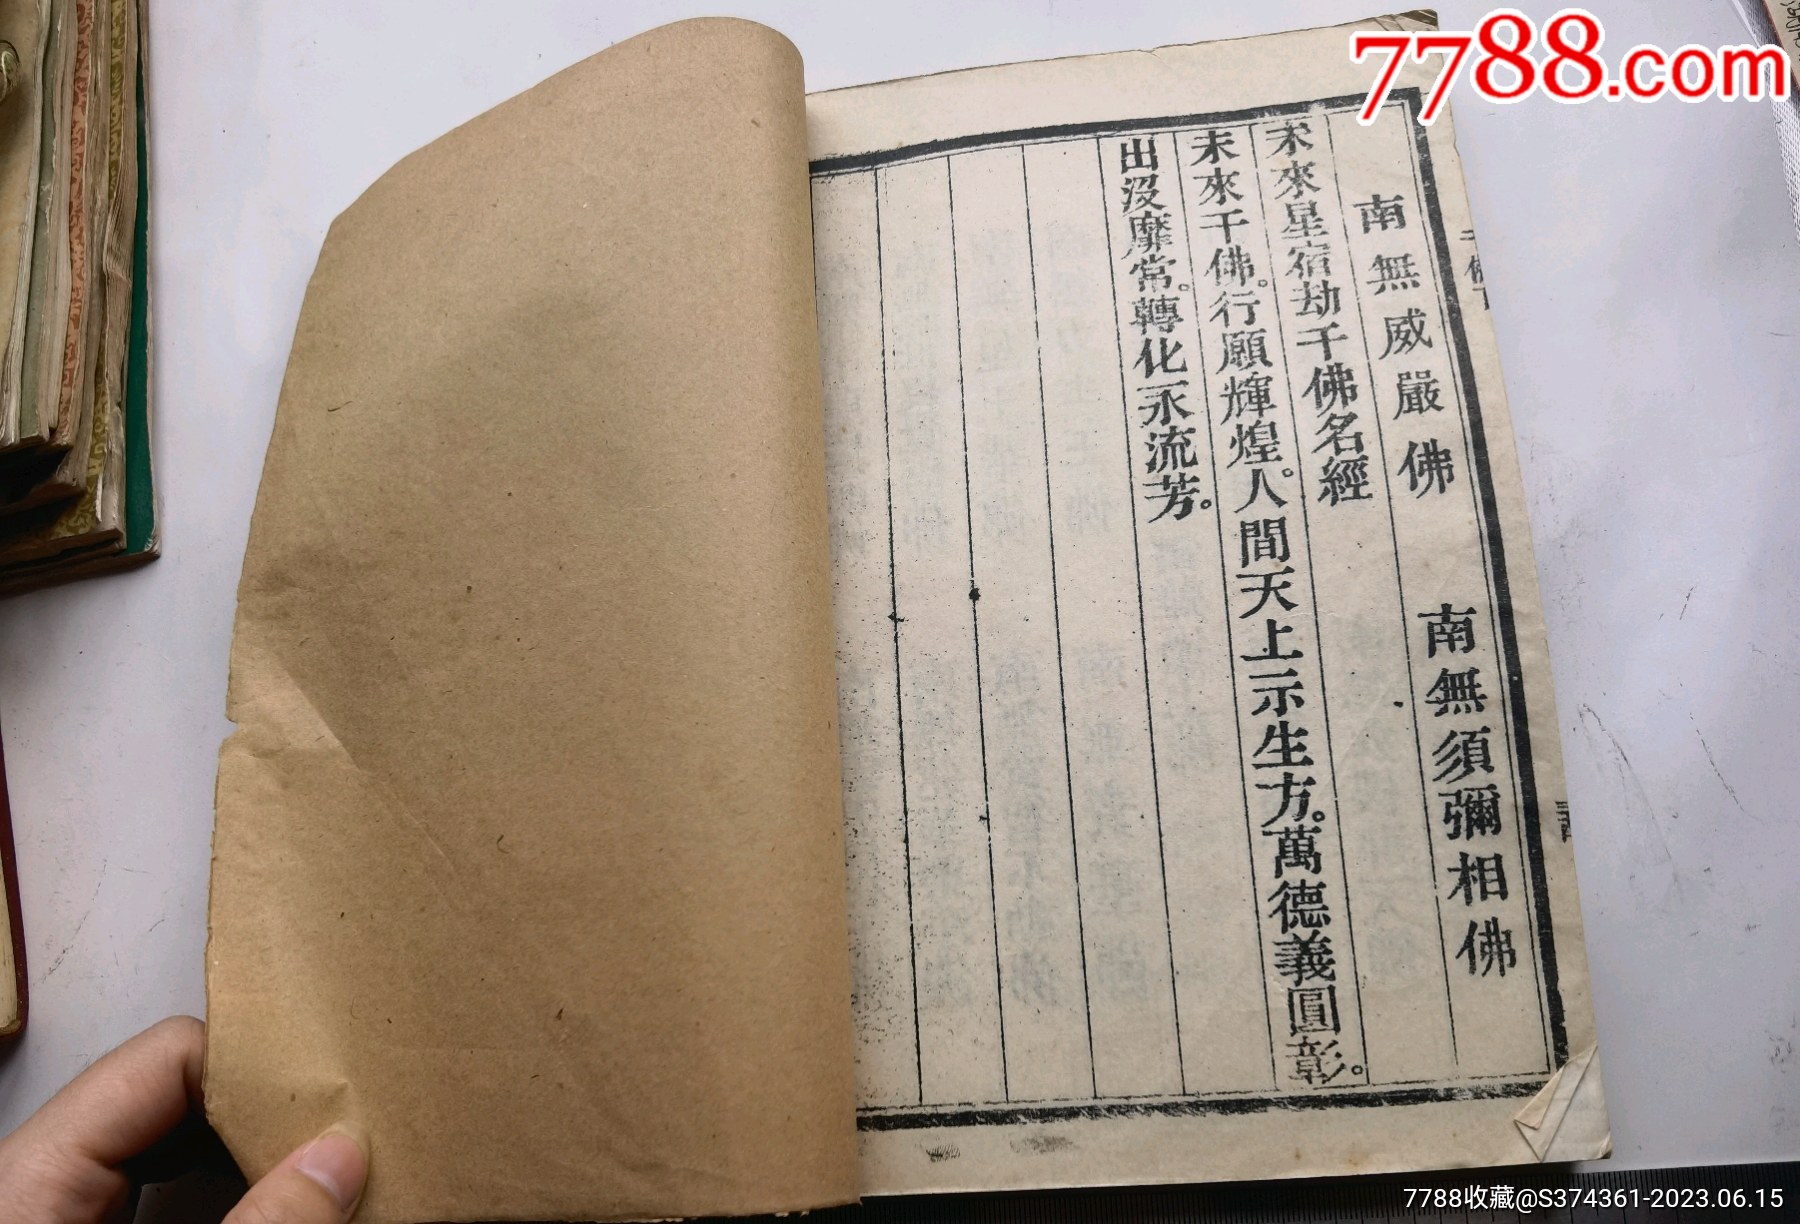 南無威嚴佛 南無須彌相佛
未來星宿劫千佛名經
未來千佛。行願輝煌。人間天上示生方。萬德義圓彰。
出沒靡常。轉化永流芳。
7788.com
7788收藏@S374361-2023.06.15